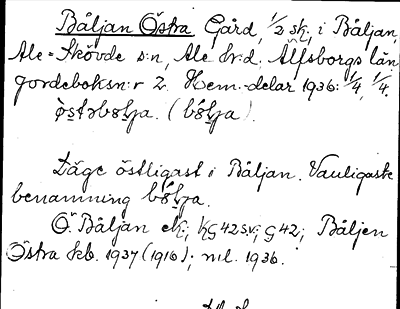 Båljan Östra Gård, 1/2 sk, i Båljan,
Ale-Skövde s:n, Ale hrd. Älfsborgs län
jordeboksn:r 2. Hem.-delar 1936: 1/4, 1/4.
Läge östligast i Båljan. Vanligaste
benämning
Ö. Båljan ek; hG42sv; G42; Båljen
Östra kb. 1937 (1916); ml. 1936.